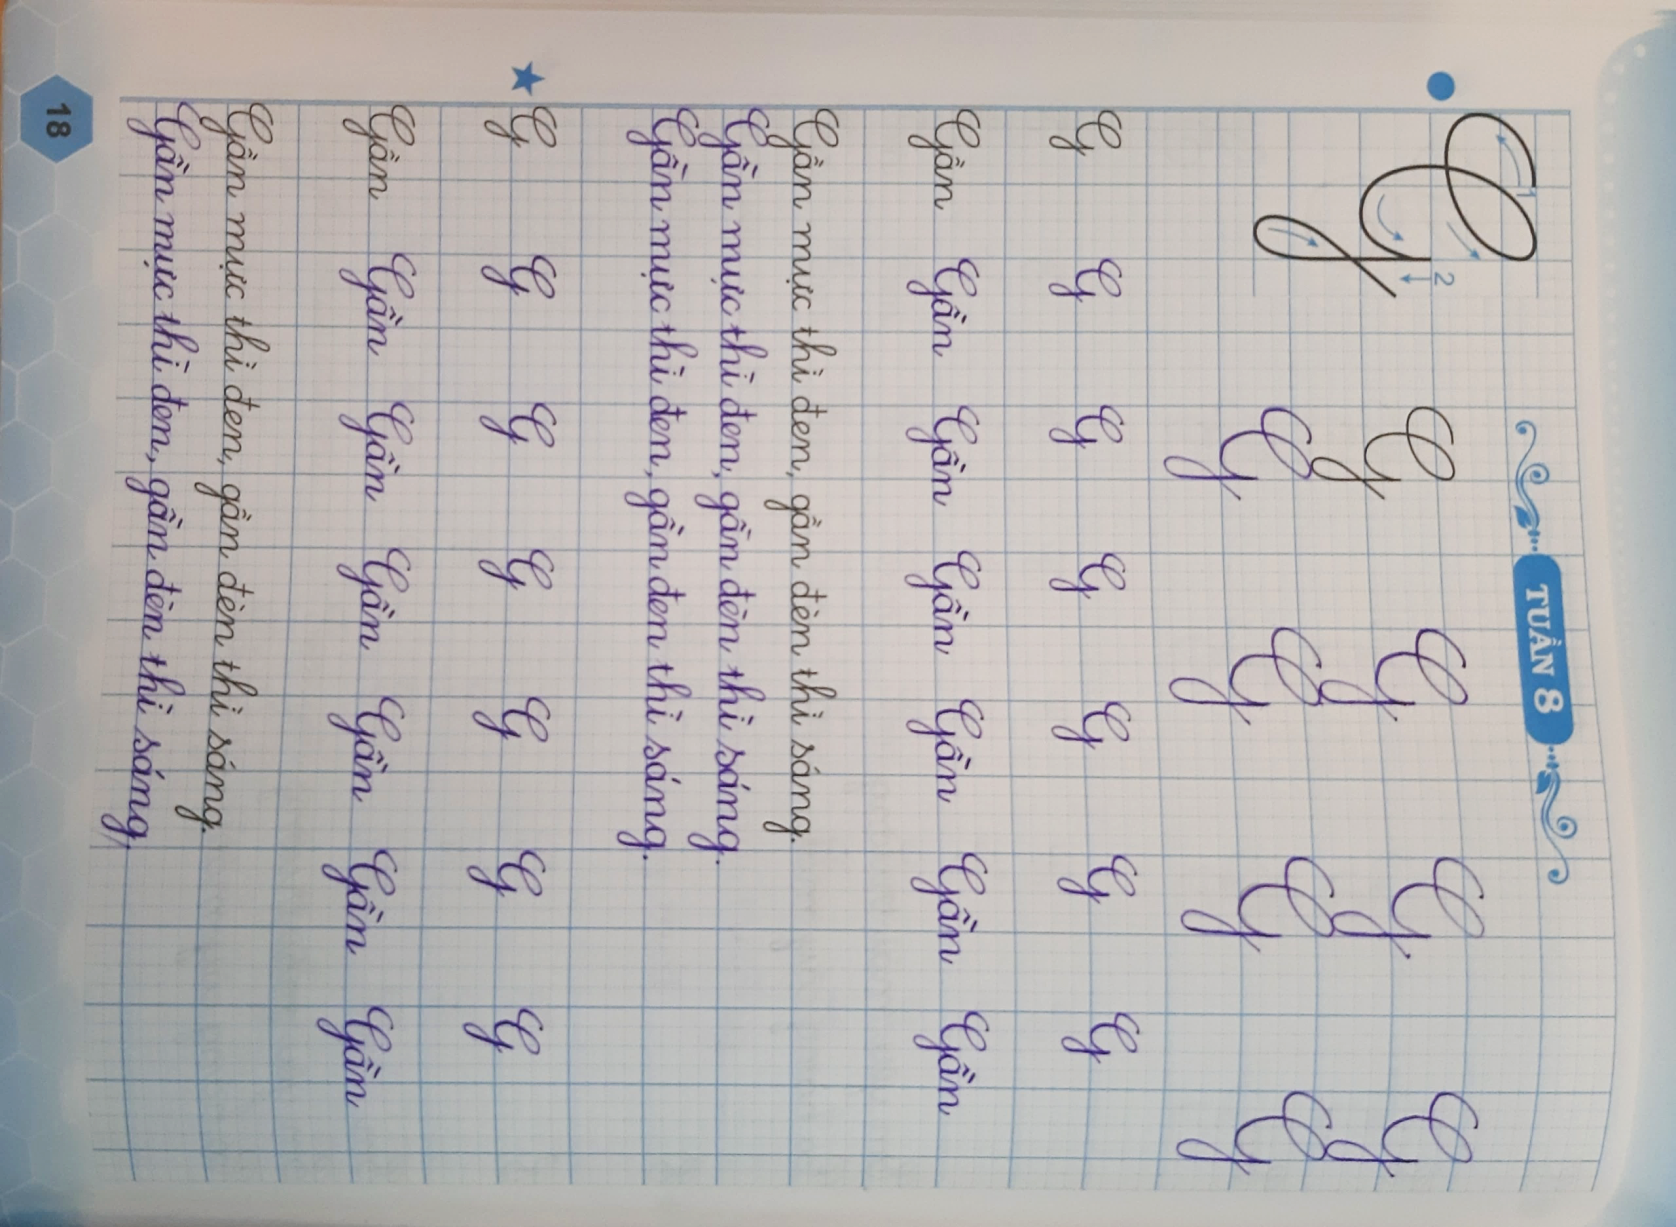 TUẦN 8
1 2
G G G G G
G G G G
G G G G G G G
Gần Gần Gần Gần Gần Gần Gần
Gần mực thì đen, gần đèn thì sáng.
Gần mực thì đen, gần đèn thì sáng.
Gần mực thì đen, gần đen thì sáng.
G G G G G G G
Gần Gần Gần Gần Gần Gần Gần
Gần mực thì đen, gần đèn thì sáng.
Gần mực thì đen, gần đèn thì sáng,
18